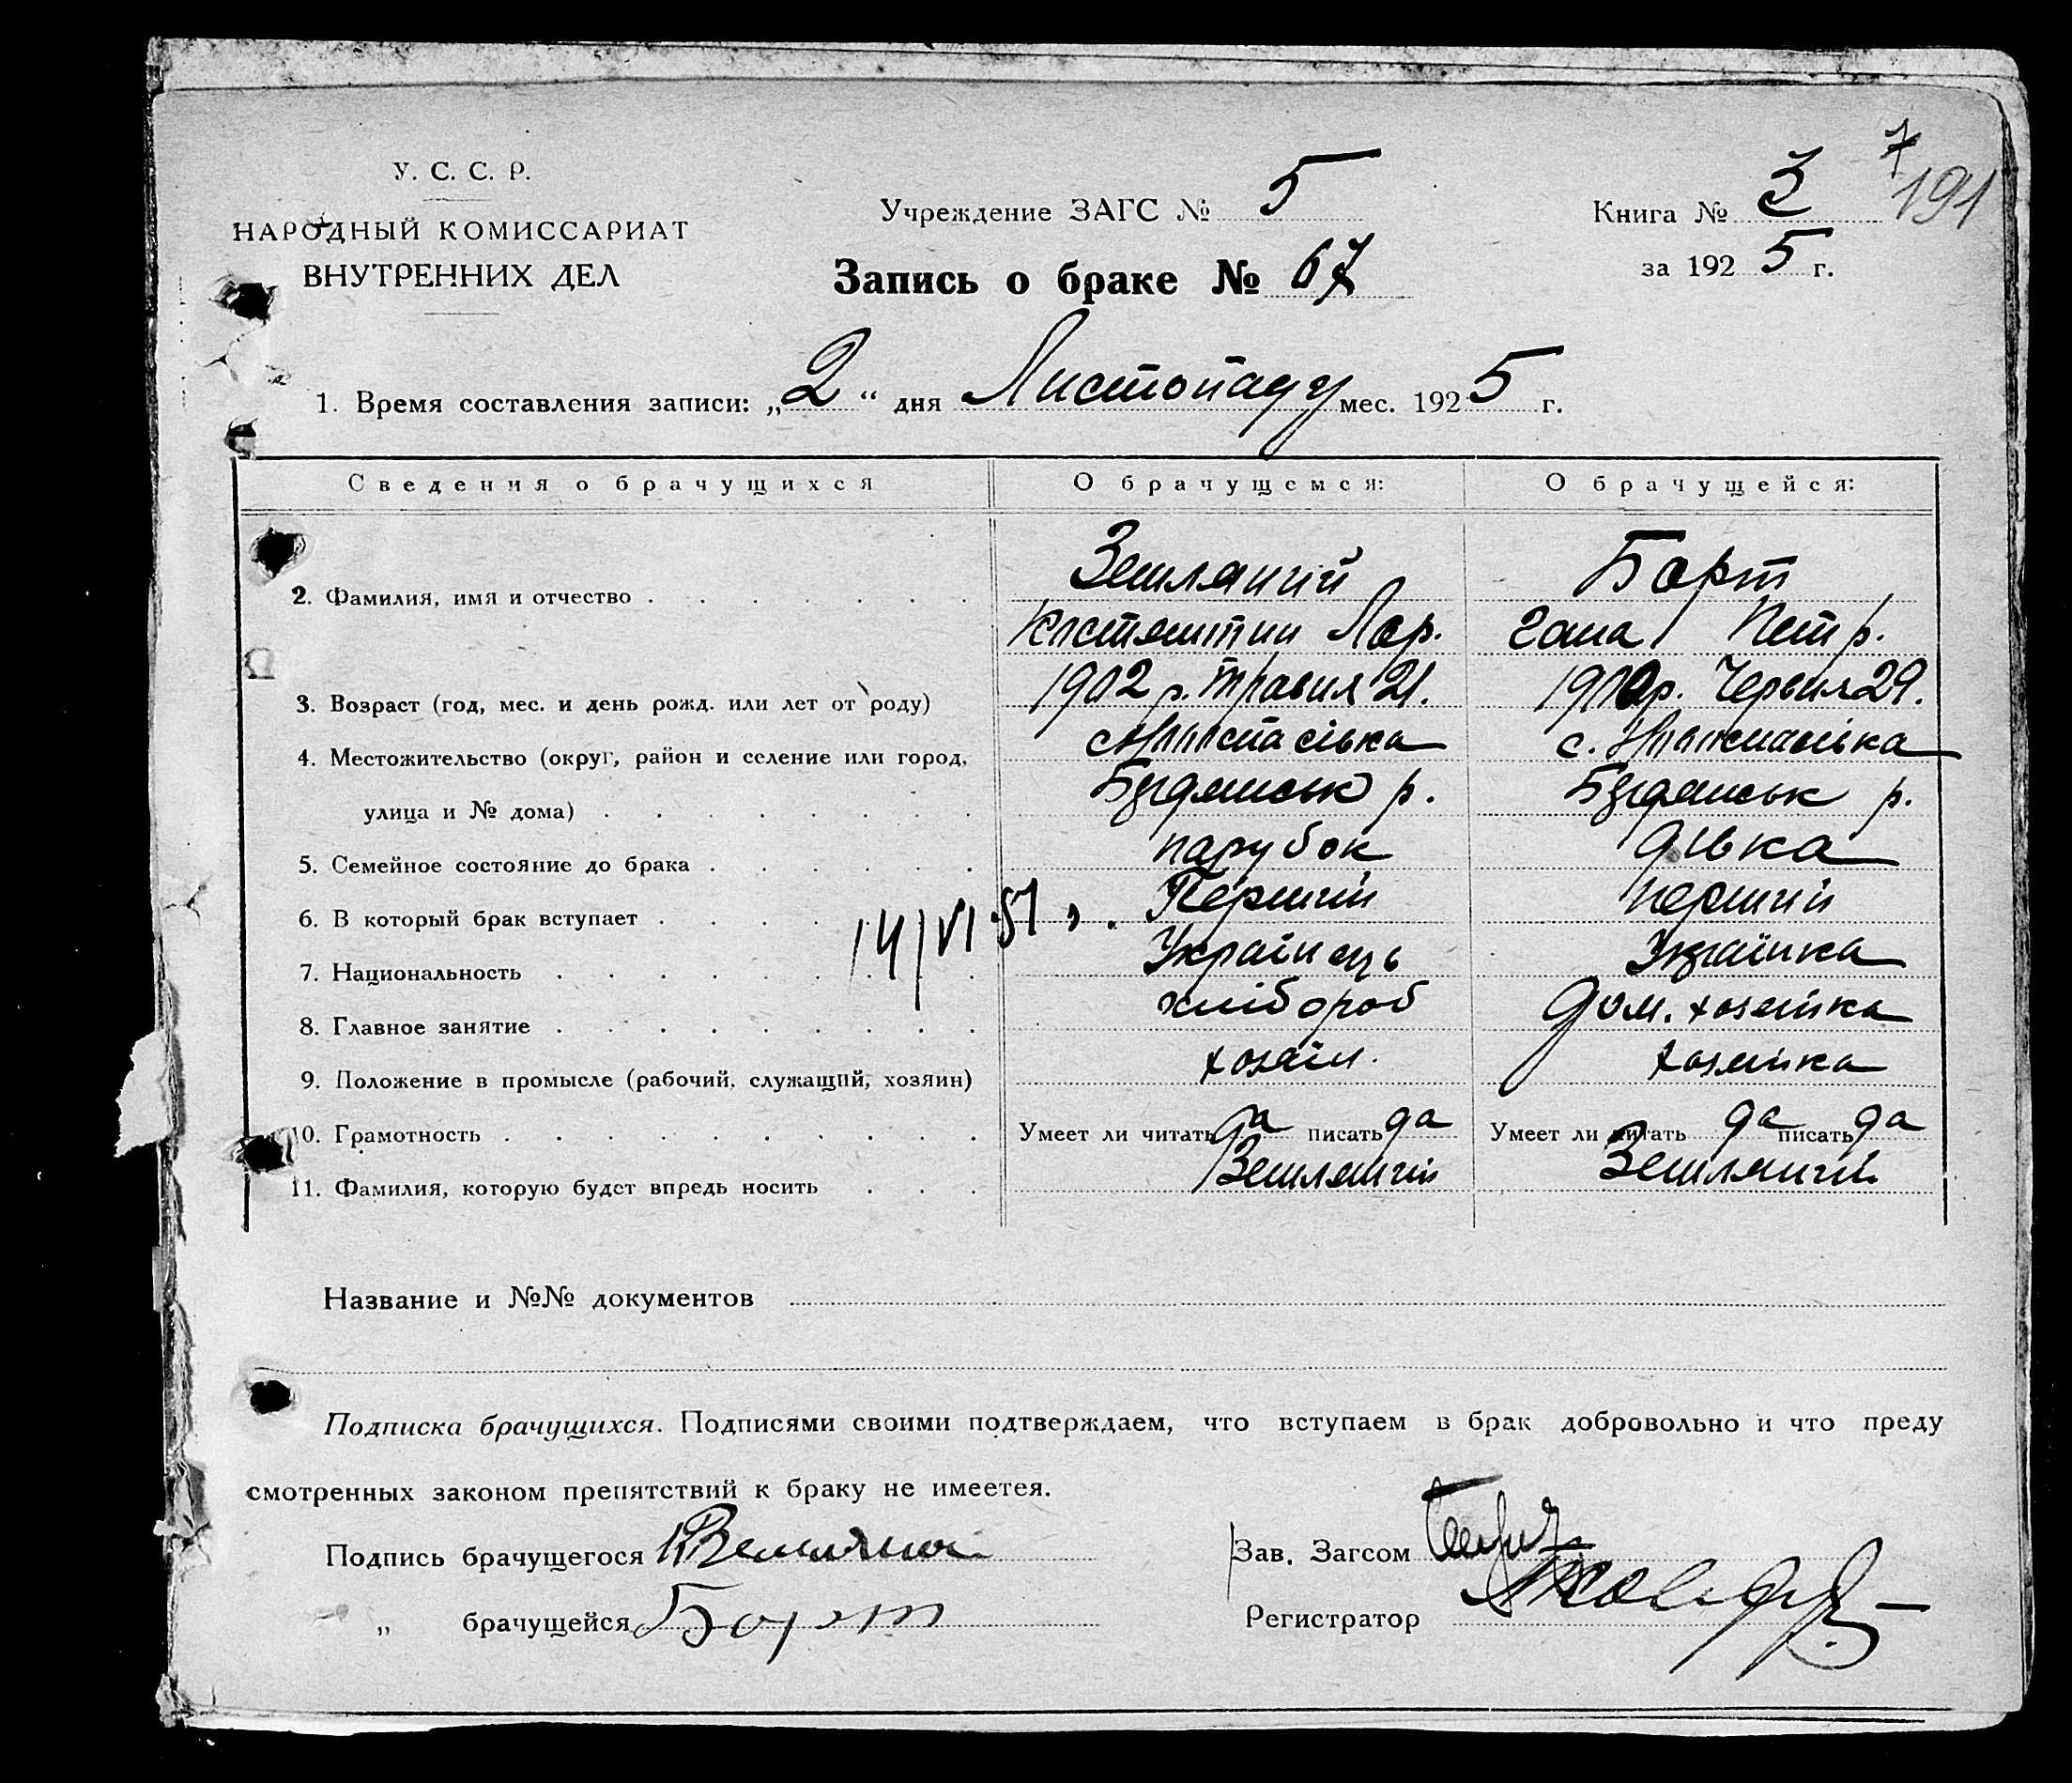 У. С. С. Р.
НАРОДНЫЙ КОМИССАРИАТ
ВНУТРЕННИХ ДЕЛ
Учреждение ЗАГС № 5
Запись о браке № 67
Книга № 3
за 1925 г.
7
191
1. Время составления записи: „2“ дня Листопаду мес. 1925 г.
Сведения о брачущихся О брачущемся: О брачущейся:
2. Фамилия, имя и отчество Земляний Борт
Костянтин Лар. Гана Петр.
3. Возраст (год, мес. и день рожд. или лет от роду) 1902 р. травня 21. 1900р. Червня 29.
4. Местожительство (округ, район и селение или город, с.
улица и № дома) р. р.
5. Семейное состояние до брака парубок дівка
6. В который брак вступает Перший перший
14/VI 51
7. Национальность Українець Українка
8. Главное занятие хлібороб дом. хозяйка
9. Положение в промысле (рабочий, служащий, хозяин) хозяїн. хозяйка
10. Грамотность Умеет ли читать да писать да Умеет ли читать да писать да
11. Фамилия, которую будет впредь носить Земляний Земляний
Название и №№ документов
Подписка брачущихся. Подписями своими подтверждаем, что вступаем в брак добровольно и что преду
смотренных законом препятствий к браку не имеетея.
Подпись брачущегося Зав. Загсом
„ брачущейся Борт Регистратор